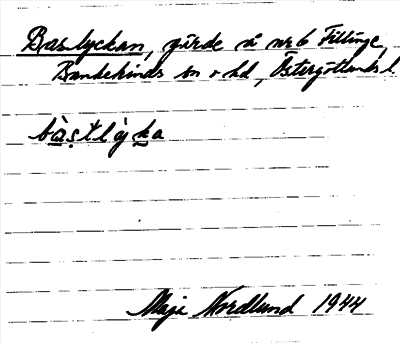 Baslyckan, gärde å nr 6 Fillinge,
Bankekinds sn o hd, Östergötlands l.
bàstlỳka
Maje Nordlund 1944